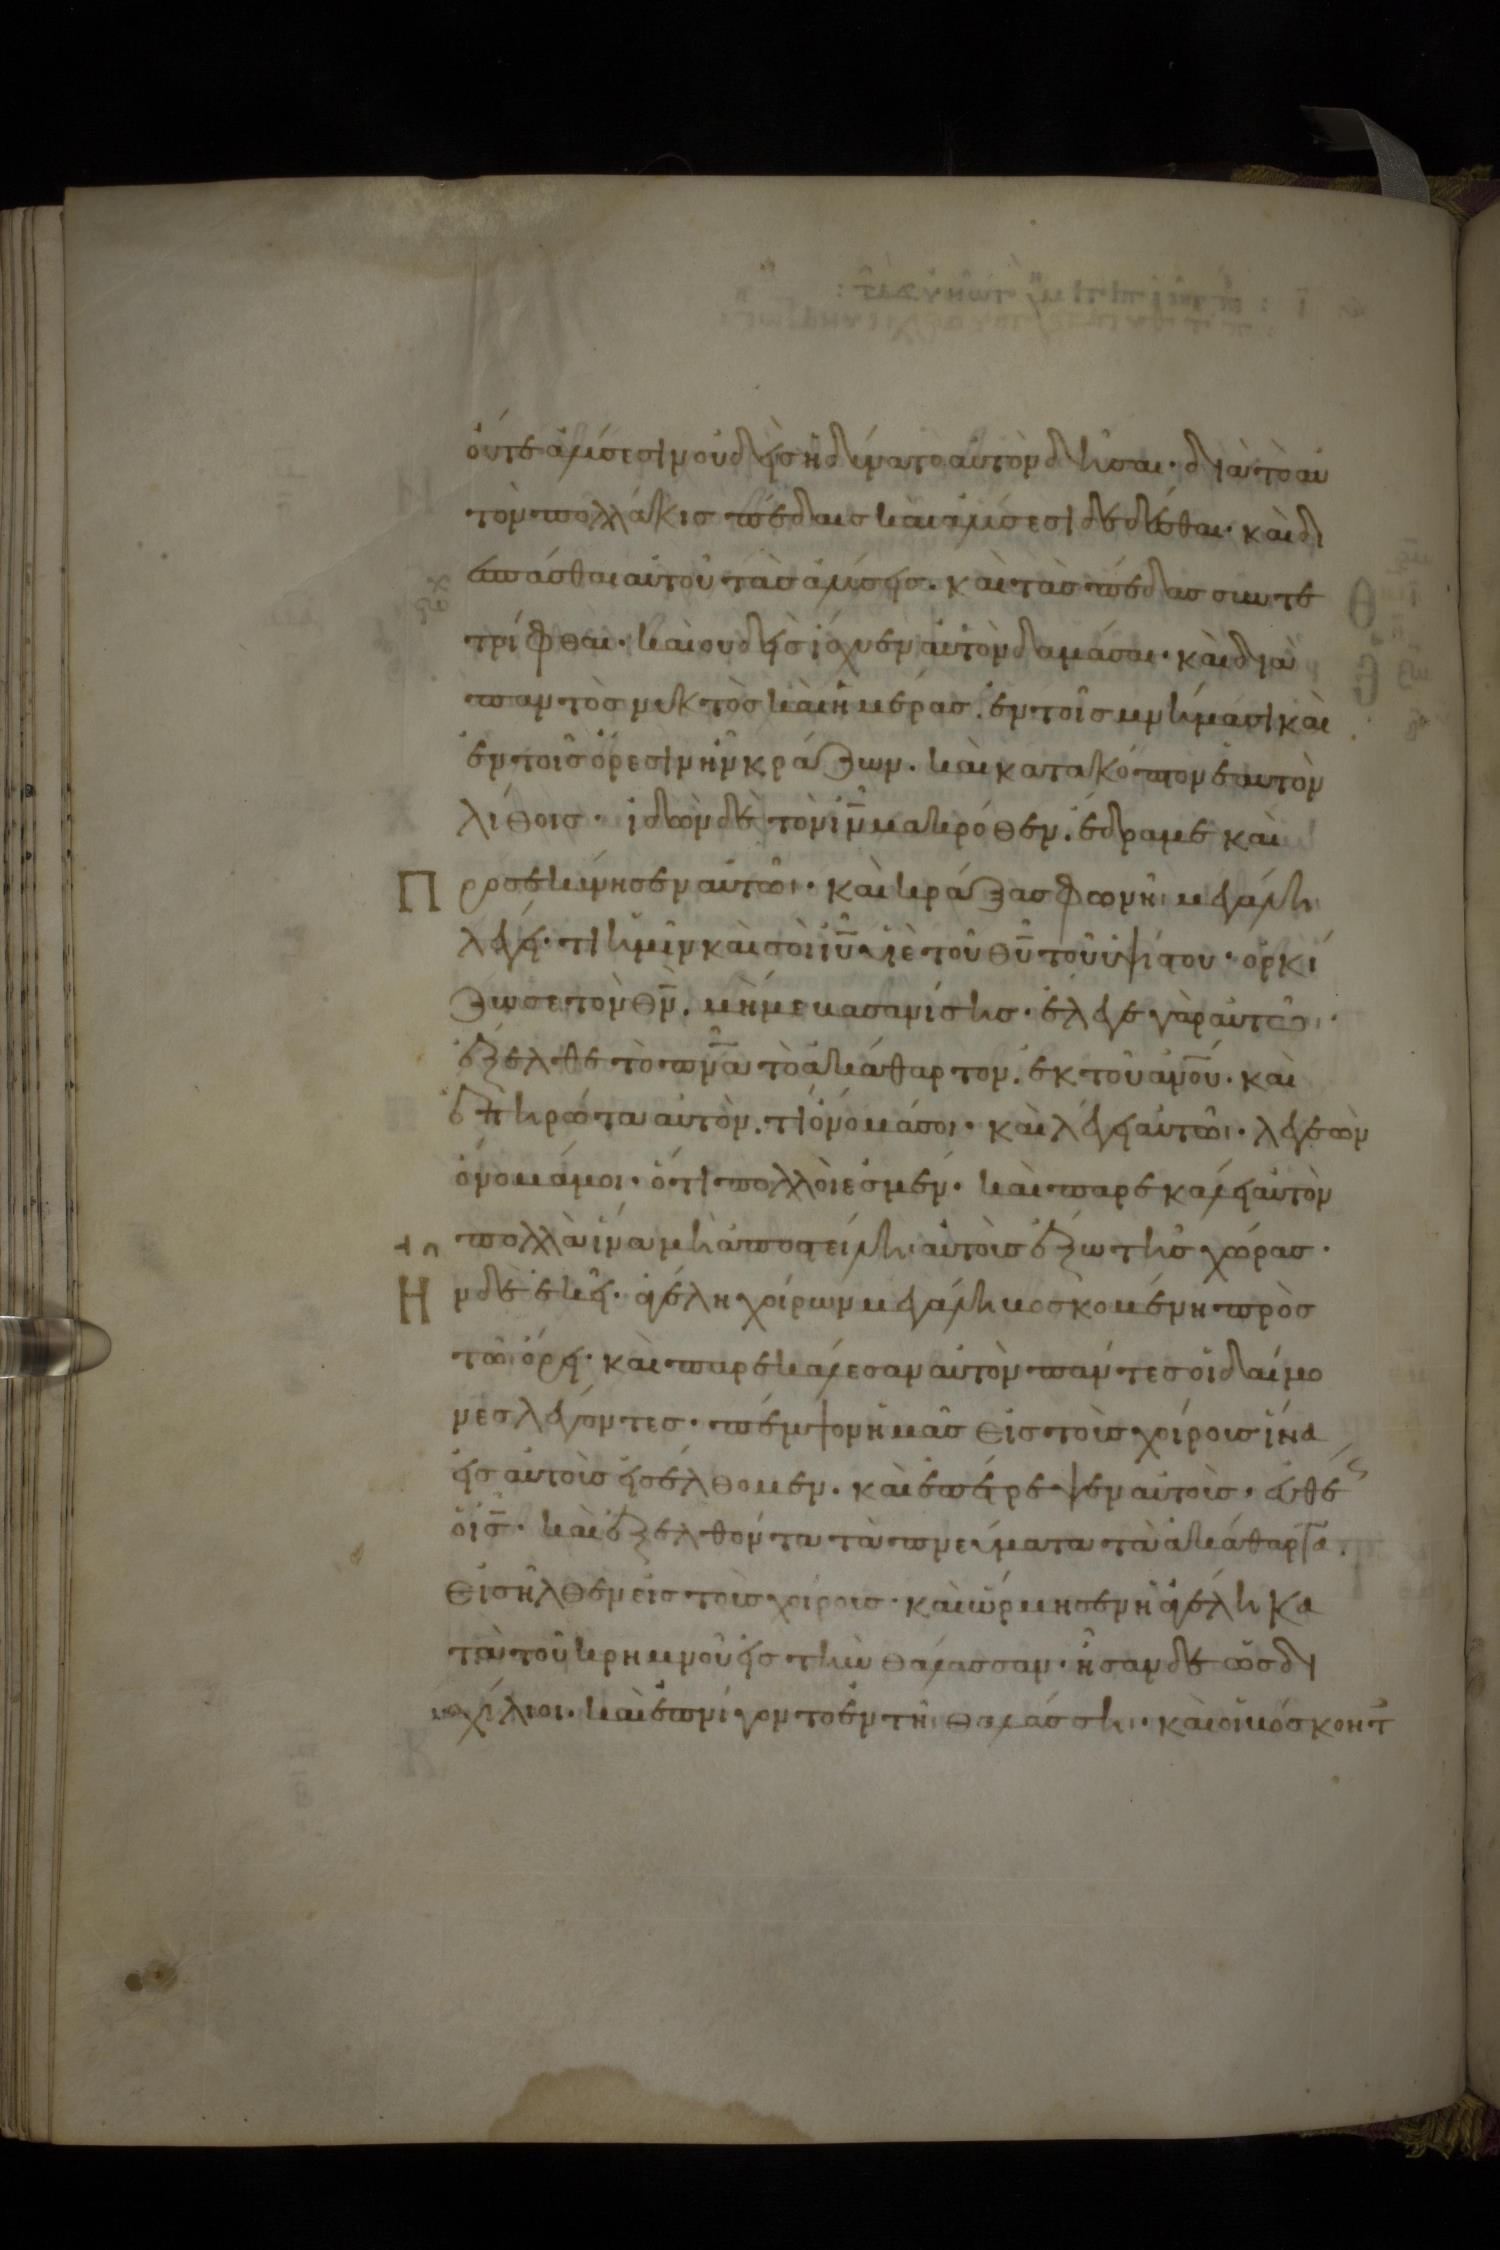 ὁύτε ἁλύσεσιν οὐδεὶς ἠδύνατο αὐτὸν δῆσαι· διὰ τὸ αὐ
τὸν πολλάκις πέδαις καὶ ἁλύσεσι δεδέσθαι· καὶ δι
εσπάσθαι αὐτοῦ τὰς ἁλύσεις. καὶ τὰς πέδας συντε
τρίφθαι· καὶ ουδεὶς ἴσχυσεν αὐτὸν δαμάσαι· καὶ διὰ
παντὸς νυκτὸς καὶ ἡμέρας. ἐν τοῖς μνήμασι καὶ
ἐν τοῖς ὄρεσιν ἦν κράζων. καὶ κατακόπτον ἑαυτὸν
λίθοις· ἰδὼν δὲ τὸν ιν̅ μακρόθεν. ἔδραμε καὶ
Προσεκύνησεν αὐτῶι· καὶ κράξας φωνῆι μεγάλη
λέγει· τί ἡμῖν καὶ σοὶ ιυ̅ υἱὲ τοῦ θυ̅ τοῦ ὑψίστου· ὁρκί
ζω σε τὸν θν̅. μή με βασανίσης· ἔλεγε γὰρ αὐτῶι·
ἔξελθε τὸ πνα̅ τὸ ἀκάθαρτον. ἐκ τοῦ ανου̅· καὶ
ἐπηρώτα αὐτὸν. τί ὄνομά σοι· καὶ λέγει αὐτῶι· λεγεὼν
ὄνομά μοι· ὅτι πολλοὶ εσμέν· καὶ παρεκάλει αὐτὸν
πολλὰ ἵνα μὴ ἀποστείλη αὐτοὺς ἔξω τῆς χώρας·
Ην δὲ ἐκεῖ· ἀγέλη χοίρων μεγάλη βοσκομένη πρὸς
τῶι ὄρει· καὶ παρεκάλεσαν αὐτὸν πάντες οἱ δαίμο
νες λέγοντες· πέμψον ἡμᾶς εἰς τοὺς χοίρους ἵνα
εἰς αὐτοὺς εἰσέλθομεν. καὶ ἐπέτρεψεν αὐτοὺς· εὐθέως
ὁ ις̅· καὶ ἐξελθόντα τὰ πνεύματα τὰ ἀκάθαρτα.
Εἰσῆλθεν εἰς τοὺς χοίρους· καὶ ὥρμησεν ἡ ἀγέλη κα
τὰ τοῦ κρημνοῦ εἰς τὴν θάλασσαν· ἦσαν δὲ ὡς δι
σχίλιοι· καὶ ἐπνίγοντο ἐν τῆι θαλάσση· καὶ οἱ βόσκοντ